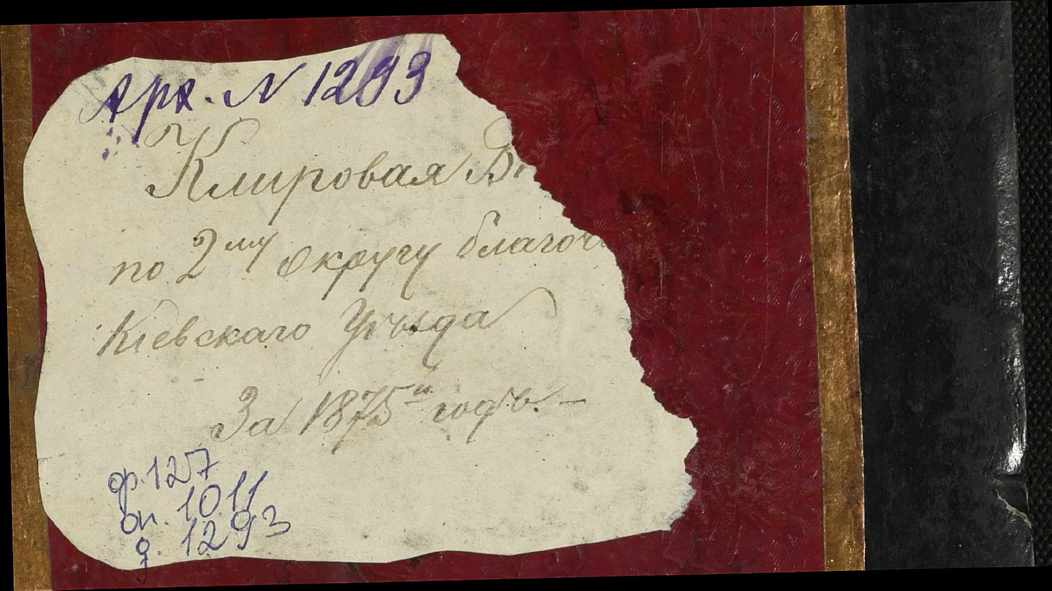 Арх. N 1293
Клировая В
по 2му округу благоч
Кіевскаго Уѣзда
За 1875й годъ. —
ф. 127
оп. 1011
д. 1293